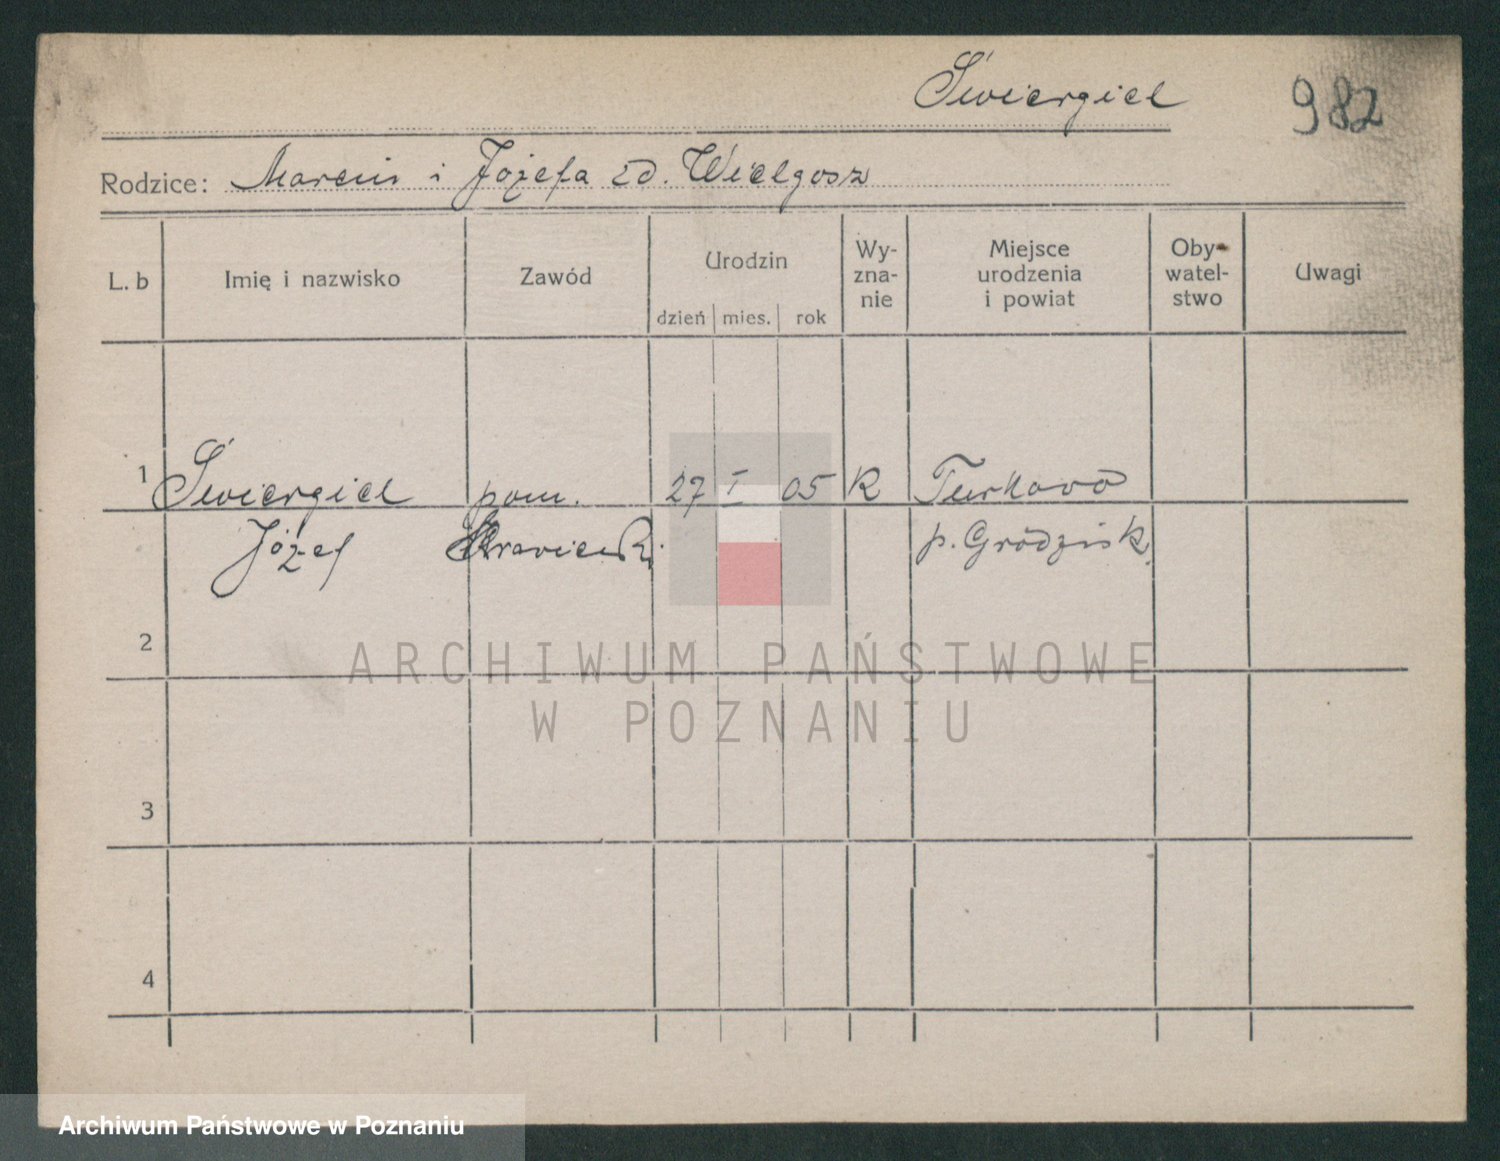 Świergiel
982
Rodzice: Marcin i Józefa zd. Wielgosz
L. b Imię i nazwisko Zawód Urodzin dzień mies. rok Wy- zna- nie Miejsce urodzenia i powiat Oby- watel- stwo Uwagi
1 Świergiel pom. 27 I 05 K Turkowo
Józef krawiecki p. Grodzisk
2
ARCHIWUM PAŃSTWOWE
W POZNANIU
3
4
Archiwum Państwowe w Poznaniu